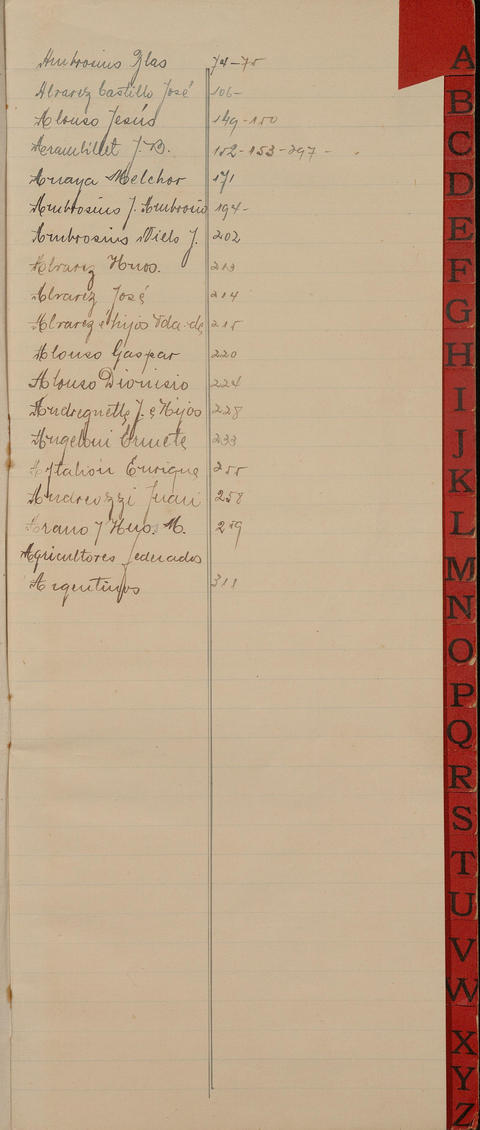 Ambrosius Blas 74-75
Alvarez Castillo José 106-
Alonso Jesús 149-150
Arambillet J. B. 152-153-297-
Anaya Melchor 171
Ambrosius J. Ambrosio 194-
Ambrosius Niels J. 202
Alvarez Hnos. 213
Alvarez José 214
Alvarez e hijos Vda. de 215
Alonso Gaspar 220
Alonso Dionisio 224
Andregnette J. e Hijos 228
Angeloni Ermete 233
Enrique 255
Andreozzi Juan 258
Arano y Hnos. M. 259
Agricultores federados
Argentinos 311
A
B
C
D
E
F
G
H
I
J
K
L
M
N
O
P
Q
R
S
T
U
V
W
X
Y
Z